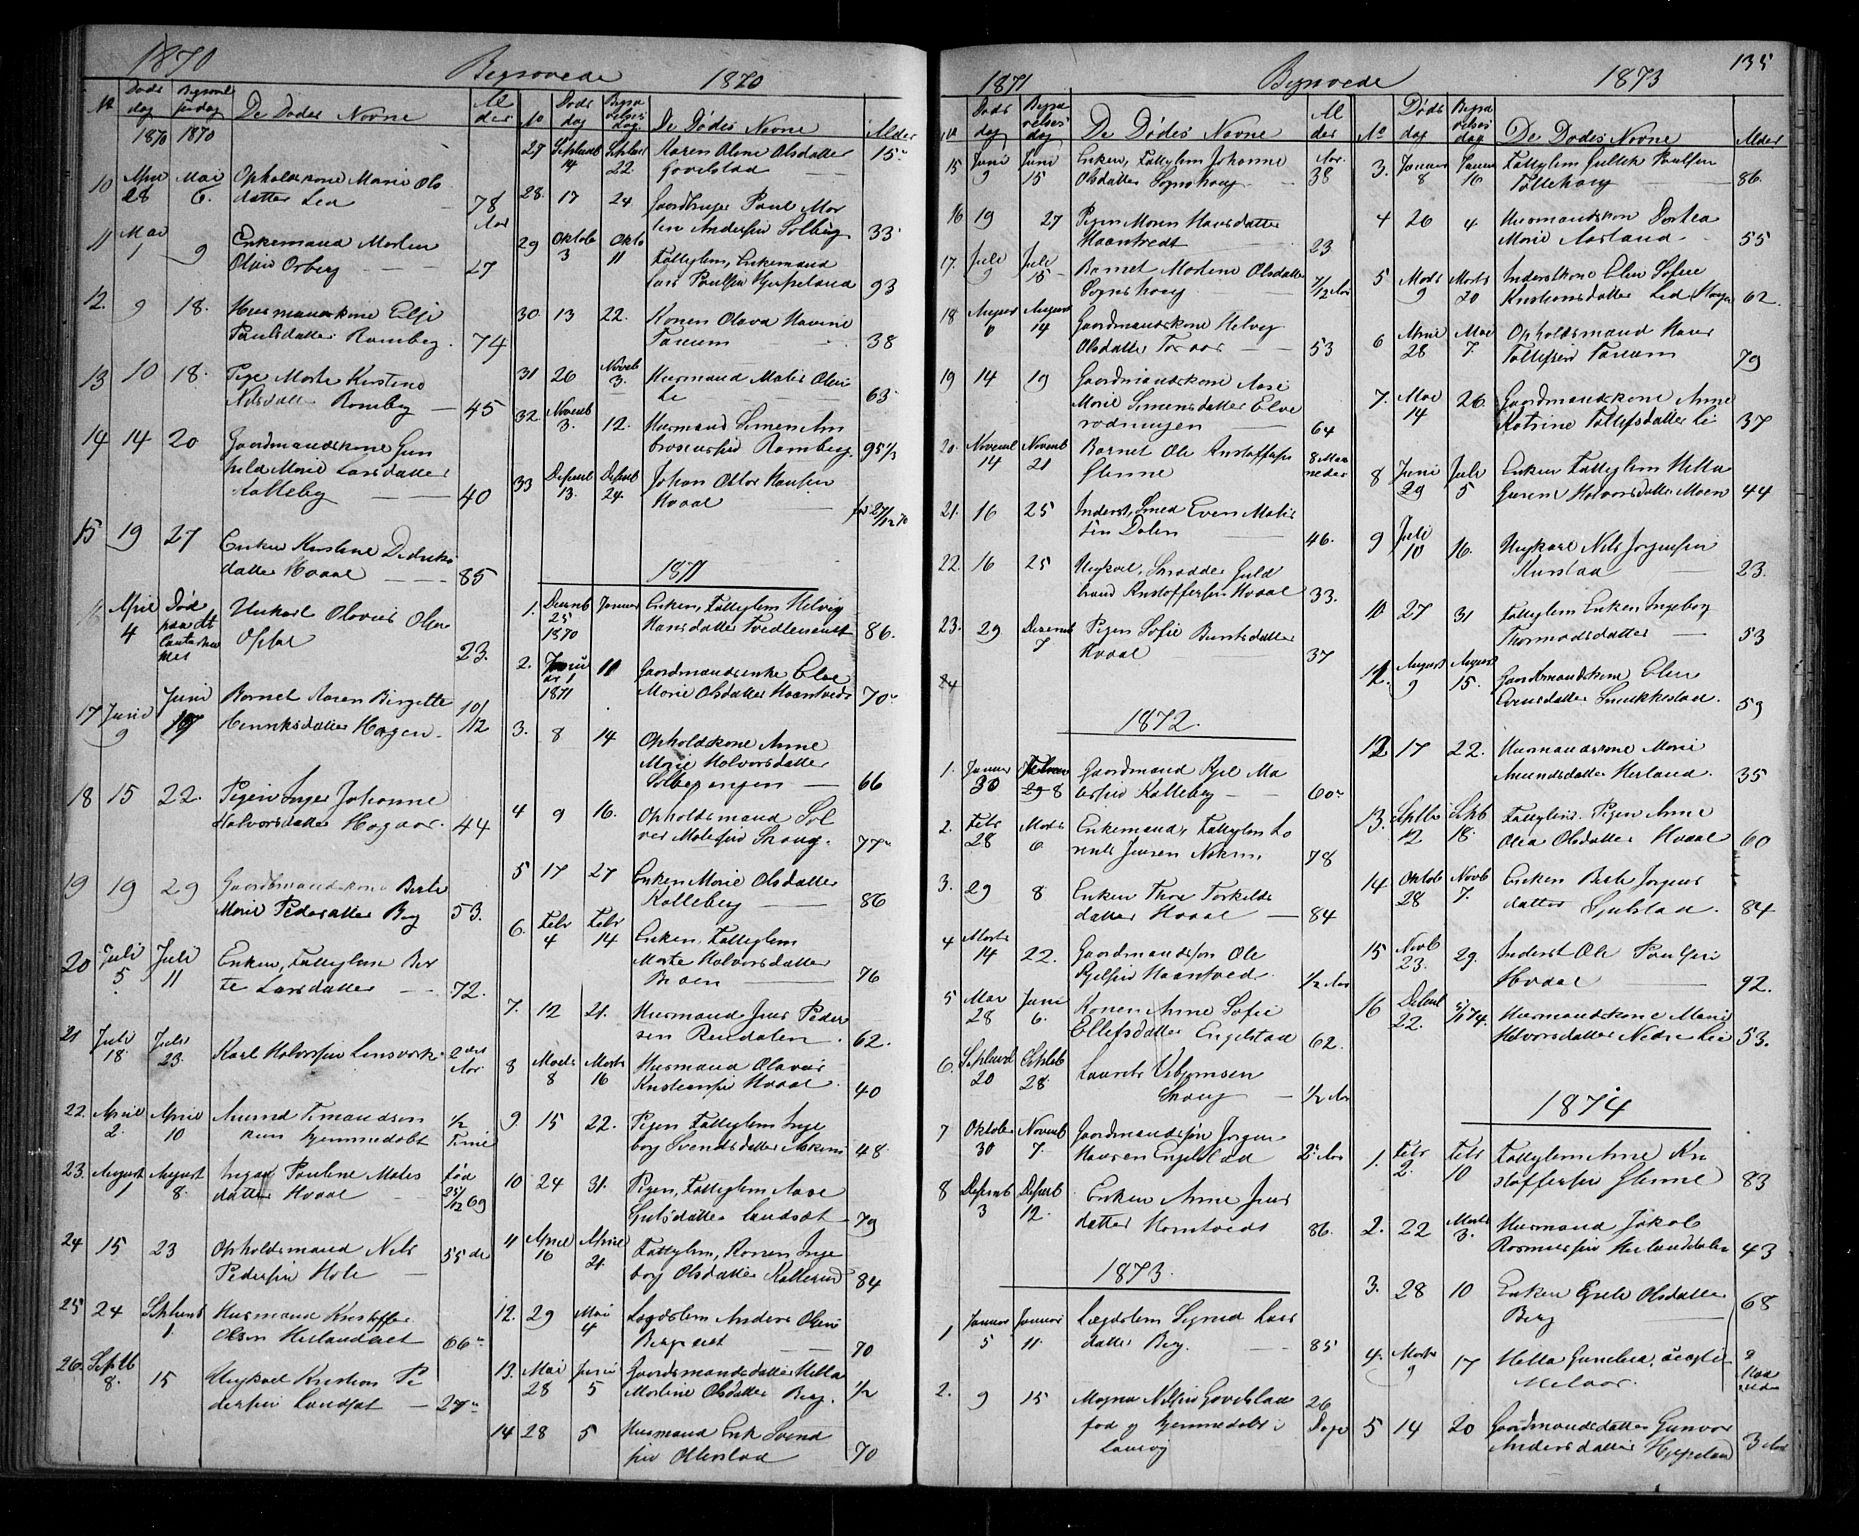 1870 Begravede 1870
No Døds dag Begravel sesdag De Dødes Navne Al der
1870 1870
10 April 28 Mai 6. Opholdskone Marie Ols
datter Lia 78 Aar
11 Mai 1 9 Enkemand Morten
Olsen Orberg 27
12. 9 18. Husmandskone Eilje
Paulsdatter Ramberg. 74
13 10 18. Pige Marte Kirstine
Nilsdatter Ramberg 45
14 14 20 Gaardmandskone Gun
hild Marie Larsdatter
Kalleberg 40
15 19 27 Enken Kirstine Didriks
datter Hvaal 85
April 4 Død paa Ungkarl Olavus Olsen
23.
17 Juni 9 Juni 17 Barnet Karen Birgitte
Henriksdatter Hagen. 10/12
18 15 22. Pigen Inger Johanne
Halvorsdatter Hagaar. 44
19 19 29 Gaardmandskone Berte
Marie Pedersdatter Berg 53.
20 Juli 5 Juli 11 Enken, Fattiglem Ber
te Larsdatter 72.
21 Juli 18. Juli 23. Karl Halvorsen Linsverk 2 Aar
22. April 2. April 10 Amund
hjemmedøbt 1/2 Time
23. August 1 August 8. Pauline Mates
datter Hvaal 25/12 69
24 15 23 Opholdsmand Nils
Pedersen Hole 55
25 24 Septemb 1. Husmand Kristoffer
Olsen Herlandseiet 66
26 Septb 8. 15 Ungkarl Kristian Pe
dersen Landsæt 27
No Døds dag Begravelses dag De Dødes Navne Alder
27 Septemb 14 Septemb 22. Karen Oline Olsdatter
Gavelstad 15
28. 17 24. Gaardbruger Paul Mar
tin Andersen Solberg 33
29 Oktober 3 Okto 11 Fattiglem, Enkemand
Lars Paulsen Hjerpeland 93
30 13 22. Konen Olava Havine
Fareum 38
31 26 Novemb 3. Husmand Mates Olsen
Lie 63
32. Novemb 3. 12. Husmand Simen Am
brosiusen Ramberg. 95 1/2
33 Desemb 13. Desemb 24. Johan Ottar Hansen
Hvaal 27/12 70
1871
1. Decemb 25 1870 Januar Enken, Fattiglem Helvig
Hansdatter 86.
2. Januar 1 1871 11 Gaardmandsenke Else
Marie Olsdatter Haantvedt 70
3. 8 14 Opholdskone Anne
Marie Halvorsdatter
Solbergengen 66
4 9 16. Opholdsmand Sol
ver Matesen Skoug. 77
5 17 27 Enken Marie Olsdatter
Kalleberg 86
6. Febr 4 Febr 14 Enken, Fattiglem
Marte Halvorsdatter
Braen 76
7. 12 21. Husmand Jens Peder
sen Rendalen. 62.
8 Marts 8 Marts 16 Husmand Olavus
Kristiansen Hvaal. 40
9 15 22. Pigen Fattiglem Inge
borg Svendsdatter Askim 48
10 24 31. Pigen, Fattiglem Aase
Gulsdatter Landsæt 79
11 April 16 April 21 Fattiglem, Konen Inge
borg Olsdatter Kallerud 84
12. 29 Mai 4 Lægdslem Anders Olsen
Bergseiet 70
13. Mai 28 Juni 5 Gaardmandsdatter Mella
Martine Olsdatter Berg. 1/2
14 28 5 Husmand Erik Svend
sen Ollerstad 70
1871 Begravede 1873 135
No Døds dag Begra velses dag De Dødes Navne Al der
15 Juni 9 Juni 15 Enken, Fattiglem Johanne
Olsdatter Sognshoug Aar. 38
16 19 27 Pigen Maren Hansdatter
Haantvedt 23
17. Juli 9 Juli 18 Barnet Martine Olsdatter
Sognshoug 7/12 Aar
18 August 6 August 14 Gaardmandskone Helvig
Olsdatter Foraar 53
19 14 19 Gaardmandskone Aase
Marie Simensdatter Elve
rødningen 64
20. Novemb 14 Novemb 21 Barnet Ole Kristoffersen
Glenne 8 Maaneder
21. 16 25 Inderst, Smed Even Mates
sen Dalen 46.
22. 16 25 Ungkarl, Skrædder Guld
brand Kristoffersen Hvaal 33.
23. 29 Desemb 7 Pigen Sofie Berntsdatter
Hvaal 37
24
1872.
1. Januar 30 Februar 8 Gaardmand Kjel Ma
Kalleberg 60
2. Febr 28 Marts 6. Enkemand, Fattiglem Lo
rents Jensen 78
3. 29 8 Enken Thore Torkilds
datter Hvaal 84
4 Marts 14 22. Gaardmandssøn Ole
Kjelsen Haantved. 1/2 Aar
5 Mai 28 Juni 6. Konen Anne Sofie
Ellefsdatter Engelstad 62.
6. Septemb 20 Septb 28 Laurits Esbjørnsen
Skoug 1/2 Aar
7 Oktober 30 Novemb 7. Gaardmandssøn Jørgen
Hansen Engelstad 2 Aar
8 Desemb 3 Desemb 12. Enken Anne Jens
datter Komtvedt 86.
1873.
1 Januar 5 Januar 11. Lægdslem Signed Lars
datter Berg. 85
2. 9 15 Magna Nilsen Gavelstad
fød og hjemmedøbt i
Laurvig 26 Dage
No Døds dag Begra velses dag De Dødes Navne Alder
3. Januar 8 Januar 16 Fattiglem Gullik Paulsen
Tollehoug 86.
4 26 4 Husmandskone Dortea
Marie Aarland 55
5 Marts 9 Marts 20 Inderstkone Elen Sofie
Kristiansdatter Lia Skogen 62.
6 April 28 Mai 7. Opholdsmand Hans
Tollefsen Fareum 79
7. Mai 14 26. Gaardmandskone Anne
Katrine Tollefsdatter Li 37
8 Juni 29 Juli 5 Enken Fattiglem Mella
Gurine Halvorsdatter Moen 44
9 Juli 10 16. Ungkarl Nils Jørgensen
23.
10 27 31 Fattiglem Enken Ingeborg
Thormodsdatter 53
11. August 9 August 15. Gaardmandskone Elen
Evensdatter Smukkestad. 59
12 17 22. Husmandskone Marie
Amundsdatter Herland. 35
13. Septbr 12 Septb 18. Fattiglem Pigen Anne
Olea Olsdatter Hvaal 60
14 Oktob 28 Novb 7. Enken Berte Jørgens
datter Gjulstad. 84
15 Novb 23. 29. Inderst Ole Paulsen
Hvaal 92.
16 Desemb 22. 5/1 74. Husmandskone Marie
Halvorsdatter Nedre Lie 53.
1874
1. Febr 2. Febr 10 Fattiglem Anne Kri
stoffersen Glenne 83
2. 22 Marts 3. Husmand Jakob
Rasmussen Herlanddalen 43
3. 28 10 Enken Grete Olsdatter
Berg 68
4. Marts 9 17 Mella Gunelia,
Melaar. 9 Maaneder
5 14 20 Gaardmandsdatter Gunvor
Andersdatter Hjerpeland 3 Aar